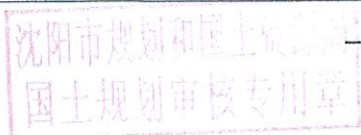 沈阳市规划和国土
国土规划审核专用章